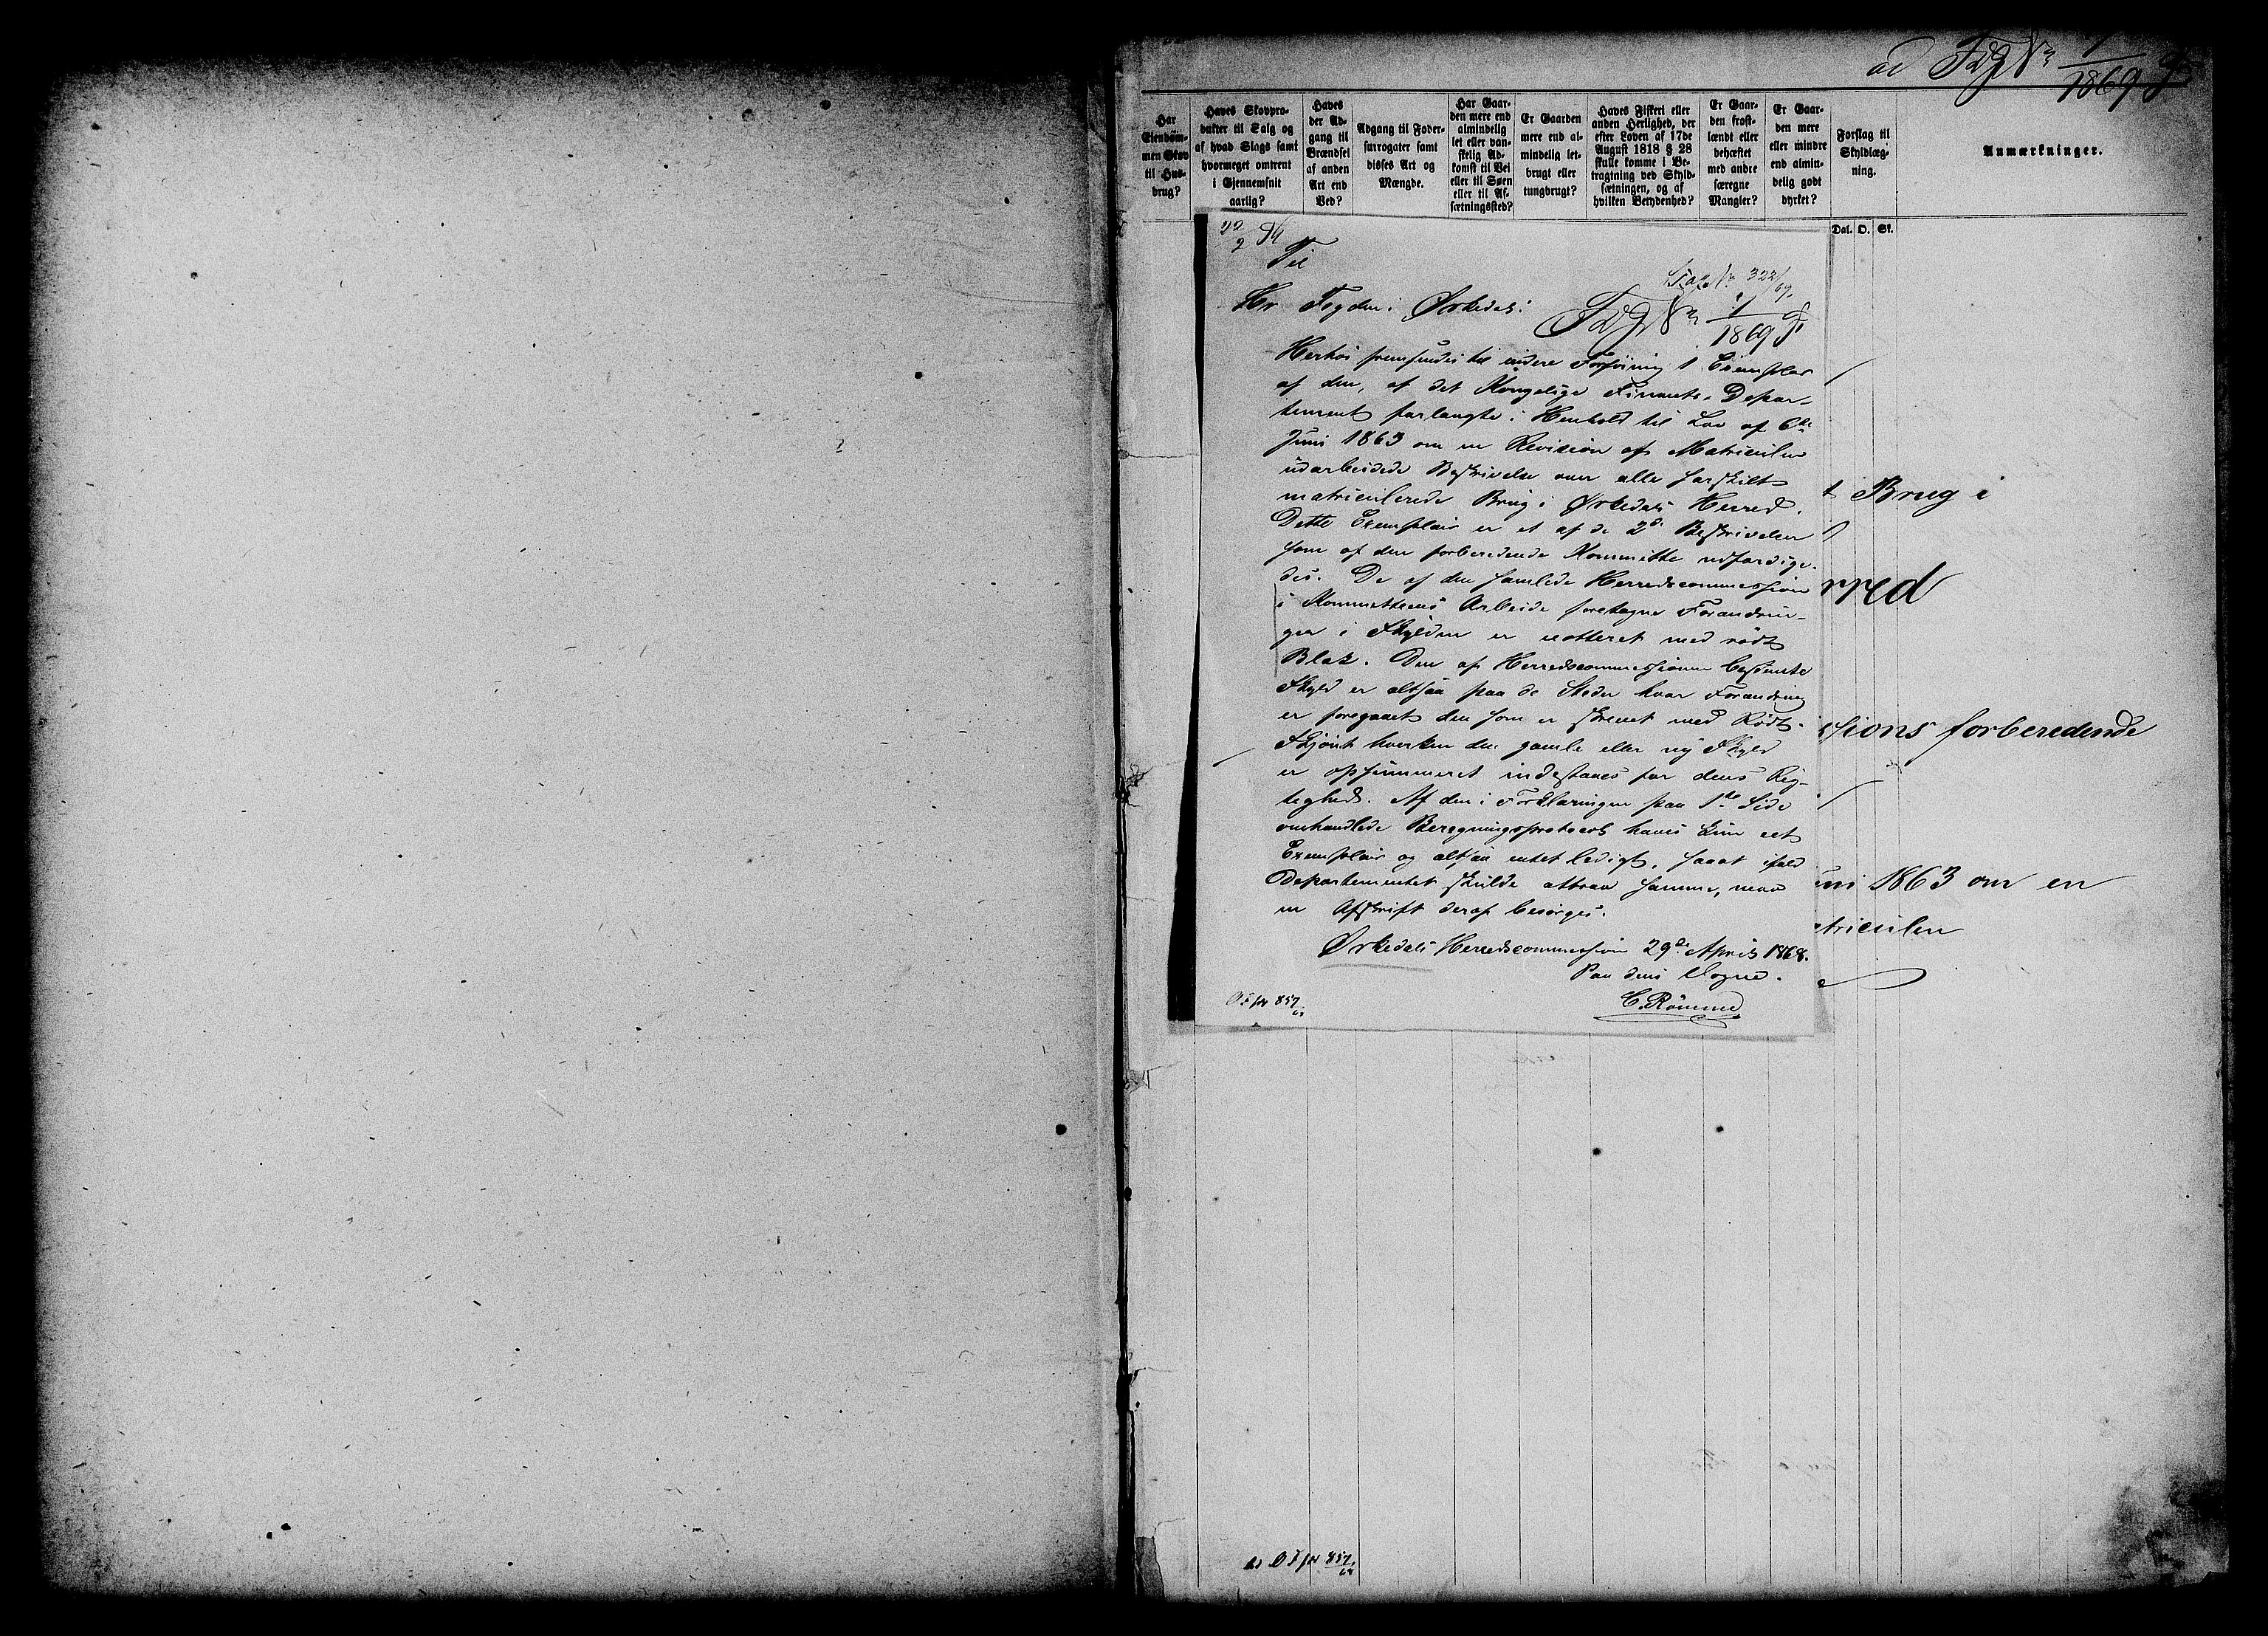 ad
1869
Har Eiendommen Skov til Husbrug?
Haves Skovprodukter til Salg og af hvad Slags samt hvormeget omtrent i Gjennemsnit aarlig?
Haves der Adgang til Brændsel af anden Art end Ved?
Adgang til Fodersurrogater samt disses Art og Mængde.
Har Gaarden mere end almindelig let eller vanskelig Adkomst til Vei eller til Søen eller til Afsætningssted?
Er Gaarden mere end almindelig letbrugt eller tungbrugt?
Haves Fiskeri eller anden Herlighed, der efter Loven af 17de August 1818 § 28 skulle komme i Betragtning ved Skyldsætningen, og af hvilken Betydenhed?
Er Gaarden frostlændt eller behæftet med andre særegne Mangler?
Er Gaarden mere eller mindre end almindelig godt dyrket?
Forslag til Skyldlægning.
Anmærkninger.
Dal. O. Sk.
Til
322/69
Hr Fogden i Ørkedal:
1/1869
Herhos fremsendes til videre Forføining 1 Exemplar
af den, af det Kongelige Finants-Depar-
tement forlangte i Henhold til Lov af 6te
Juni 1863 om en Revision af Matriculen
udarbeidede Beskrivelse over alle særskilt
matriculerede Brug i Ørkedals Herred.
Dette Exemplar er et af de 2de Beskrivelser
som af den forberedende Kommitte udfærdige-
des. De af den samlede Herredscommission
i Kommitteens Arbeide foretagne Forandrin-
ger i Skylden er notteret med rødt
Blæk. Den af Herredscommissionen bestemte
Skyld er altsaa paa de Steder hvor Forandring
er foregaaet den som er skrevet med Rødt.
Skjønt hverken den gamle eller ny Skyld
er opsummeret indestaaes for dens Rig-
tighed. Af den i Forklaringen paa 1ste Side
omhandlede Beregningsprotocol haves kun eet
Exemplar og altsaa intet ledigt, saaat ifald
Departementet skulde attraa samme, maa
en Afskrift deraf besørges.
Ørkedals Herredscommission 29de April 1868.
Paa dens Vegne.
C. Rømme
857
t Brug i
rred
sions forberedende
uni 1863 om en
triculen
857